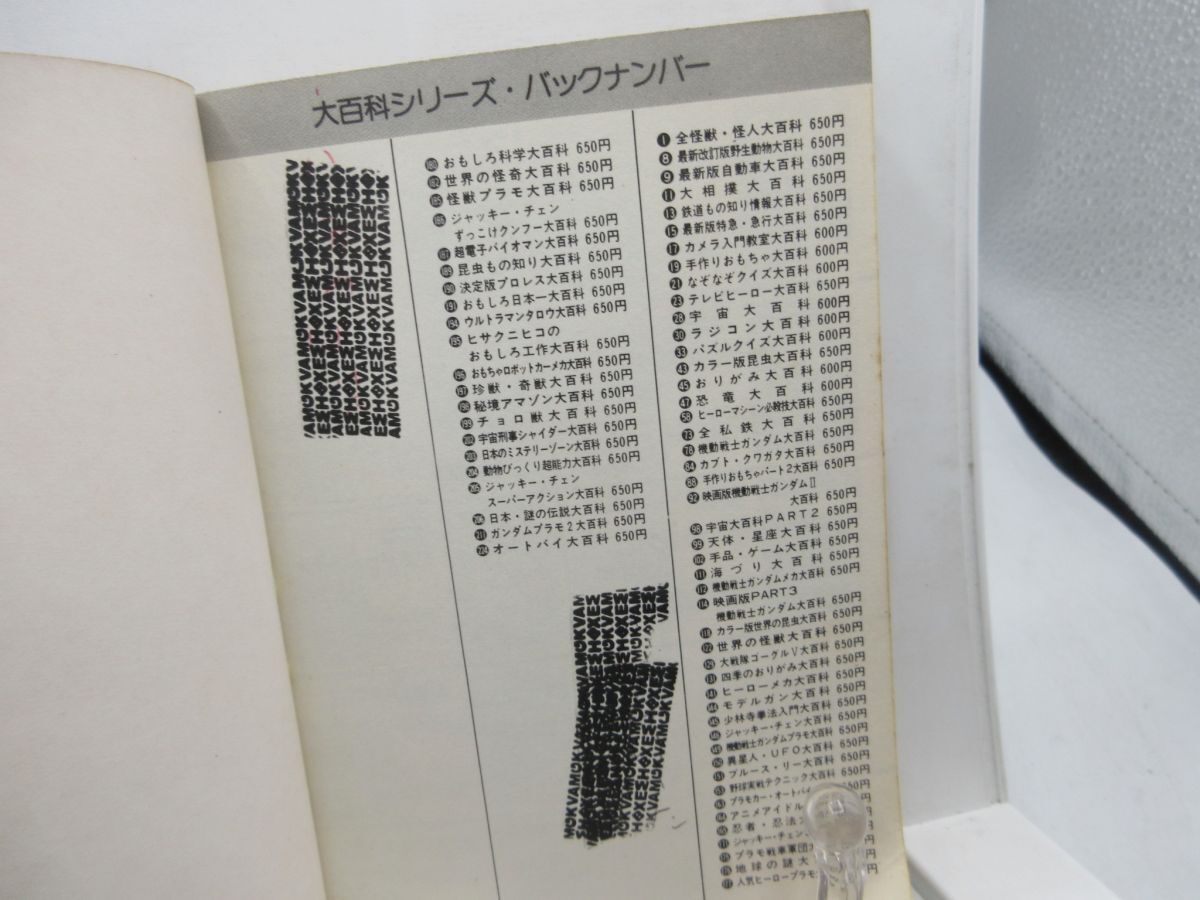 大百科シリーズ・バックナンバー
❶ 全怪獣・怪人大百科 650円
❽ 最新改訂版野生動物大百科 650円
❾ 最新版自動車大百科 650円
⓫ 大相撲大百科 650円
⓭ 鉄道もの知り情報大百科 650円
⓯ 最新版特急・急行大百科 650円
⓱ カメラ入門教室大百科 600円
⓳ 手作りおもちゃ大百科 600円
㉑ なぞなぞクイズ大百科 600円
㉓ テレビヒーロー大百科 650円
㉘ 宇宙大百科 600円
㉚ ラジコン大百科 600円
㉝ パズルクイズ大百科 600円
㊸ カラー版昆虫大百科 650円
㊺ おりがみ大百科 600円
㊼ 恐竜大百科 600円
58 ヒーローマシーン必殺技大百科 650円
73 全私鉄大百科 650円
78 機動戦士ガンダム大百科 650円
84 カブト・クワガタ大百科 650円
88 手作りおもちゃパート2大百科 650円
92 映画版機動戦士ガンダムⅡ
大百科 650円
98 宇宙大百科PART2 650円
99 天体・星座大百科 650円
102 手品・ゲーム大百科 650円
111 海づり大百科 650円
112 機動戦士ガンダムメカ大百科 650円
114 映画版PART3
機動戦士ガンダム大百科 650円
118 カラー版世界の昆虫大百科 650円
122 世界の怪獣大百科 650円
129 大戦隊ゴーグルV大百科 650円
131 四季のおりがみ大百科 650円
141 ヒーローメカ大百科 650円
144 モデルガン大百科 650円
145 少林寺拳法入門大百科 650円
146 ジャッキー・チェン大百科 650円
149 機動戦士ガンダムプラモ大百科 650円
150 異星人・UFO大百科 650円
151 ブルース・リー大百科 650円
153 野球実戦テクニック大百科 650円
163 プラモカー・オートバイ
164 アニメアイドル
165 忍者・忍法
171 ジャッキー・チェン
175 プラモ戦車軍団
176 地球の謎大
177 人気ヒーロープラモ
180 おもしろ科学大百科 650円
182 世界の怪奇大百科 650円
185 怪獣プラモ大百科 650円
186 ジャッキー・チェン
ずっこけクンフー大百科 650円
187 超電子バイオマン大百科 650円
189 昆虫もの知り大百科 650円
190 決定版プロレス大百科 650円
191 おもしろ日本一大百科 650円
194 ウルトラマンタロウ大百科 650円
195 ヒサクニヒコの
おもしろ工作大百科 650円
196 おもちゃロボットカーメカ大百科 650円
197 珍獣・奇獣大百科 650円
198 秘境アマゾン大百科 650円
199 チョロ獣大百科 650円
202 宇宙刑事シャイダー大百科 650円
203 日本のミステリーゾーン大百科 650円
204 動物びっくり超能力大百科 650円
205 ジャッキー・チェン
スーパーアクション大百科 650円
206 日本・謎の伝説大百科 650円
211 ガンダムプラモ2大百科 650円
224 オートバイ大百科 650円